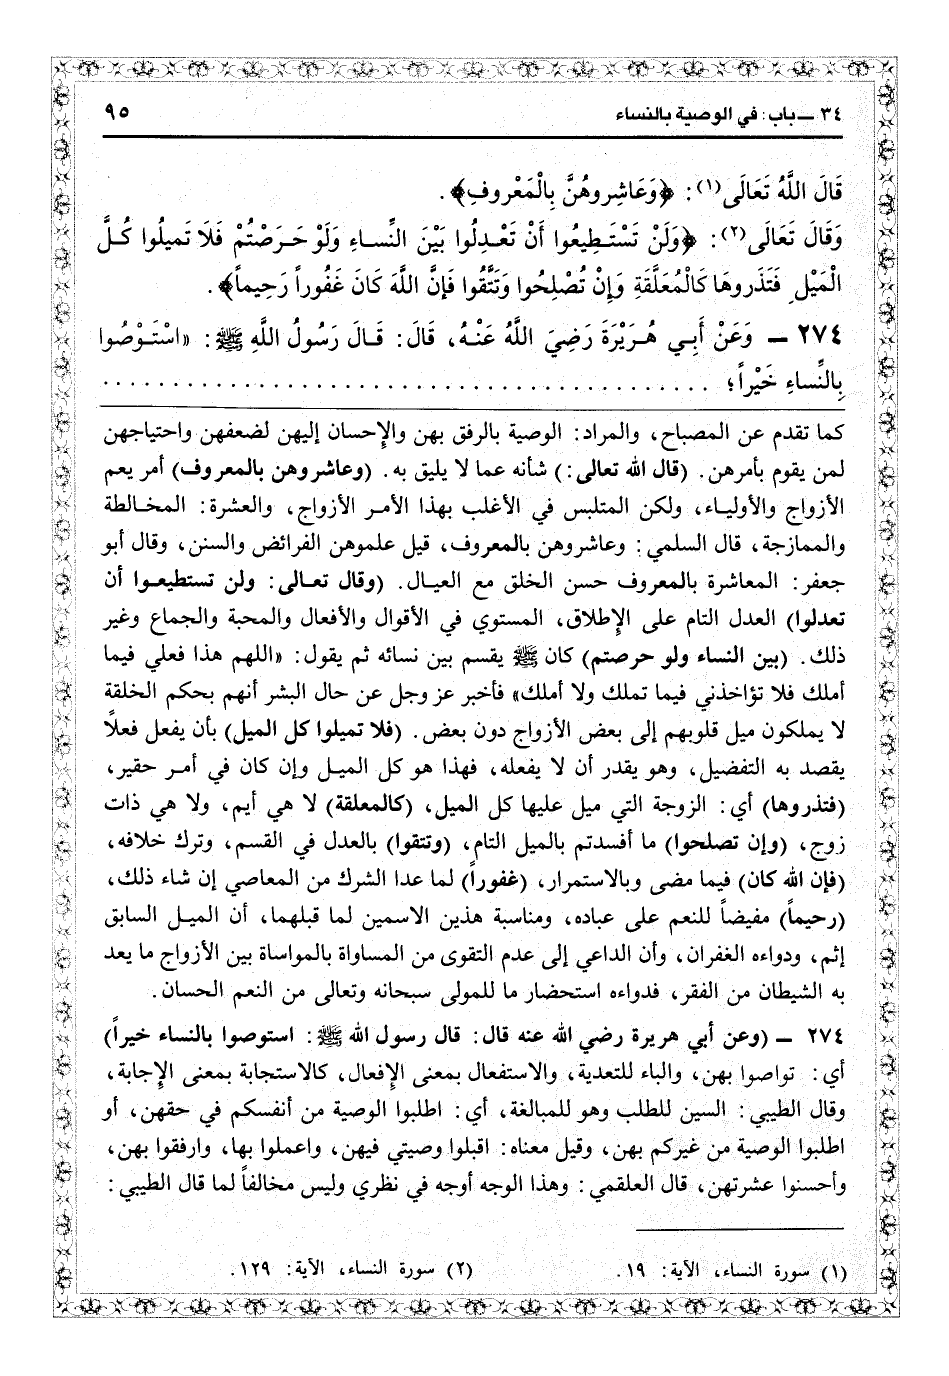 ٣٤ ــ باب: في الوصية بالنساء
٩٥
قَالَ اللَّهُ تَعَالَى(١): ﴿وَعَاشِروهُنَّ بِالْمَعْروفِ﴾.
وَقَالَ تَعَالَى(٢): ﴿وَلَنْ تَسْتَطِيعُوا أَنْ تَعْدِلُوا بَيْنَ النِّساءِ وَلَوْ حَرَصْتُمْ فَلَا تَمِيلُوا كُلَّ
الْمَيْلِ فَتَذَروهَا كَالْمُعَلَّقَةِ وَإِنْ تُصْلِحُوا وَتَتَّقُوا فَإِنَّ اللَّهَ كَانَ غَفُوراً رَحِيماً﴾.
٢٧٤ ــ وَعَنْ أَبِي هُرَيْرَةَ رَضِيَ اللَّهُ عَنْهُ، قَالَ: قَالَ رَسُولُ اللَّهِ ﷺ: «اسْتَوْصُوا
بِالنِّساءِ خَيْراً؛ ........................................
كما تقدم عن المصباح، والمراد: الوصية بالرفق بهن والإحسان إليهن لضعفهن واحتياجهن
لمن يقوم بأمرهن. (قال الله تعالى:) شأنه عما لا يليق به. (وعاشروهن بالمعروف) أمر يعم
الأزواج والأولياء، ولكن المتلبس في الأغلب بهذا الأمر الأزواج، والعشرة: المخالطة
والممازجة، قال السلمي: وعاشروهن بالمعروف، قيل علموهن الفرائض والسنن، وقال أبو
جعفر: المعاشرة بالمعروف حسن الخلق مع العيال. (وقال تعالى: ولن تستطيعوا أن
تعدلوا) العدل التام على الإطلاق، المستوي في الأقوال والأفعال والمحبة والجماع وغير
ذلك. (بين النساء ولو حرصتم) كان ﷺ يقسم بين نسائه ثم يقول: «اللهم هذا فعلي فيما
أملك فلا تؤاخذني فيما تملك ولا أملك» فأخبر عز وجل عن حال البشر أنهم بحكم الخلقة
لا يملكون ميل قلوبهم إلى بعض الأزواج دون بعض. (فلا تميلوا كل الميل) بأن يفعل فعلاً
يقصد به التفضيل، وهو يقدر أن لا يفعله، فهذا هو كل الميل وإن كان في أمر حقير،
(فتذروها) أي: الزوجة التي ميل عليها كل الميل، (كالمعلقة) لا هي أيم، ولا هي ذات
زوج، (وإن تصلحوا) ما أفسدتم بالميل التام، (وتتقوا) بالعدل في القسم، وترك خلافه،
(فإن الله كان) فيما مضى وبالاستمرار، (غفوراً) لما عدا الشرك من المعاصي إن شاء ذلك،
(رحيماً) مفيضاً للنعم على عباده، ومناسبة هذين الاسمين لما قبلهما، أن الميل السابق
إثم، ودواءه الغفران، وأن الداعي إلى عدم التقوى من المساواة بالمواساة بين الأزواج ما يعد
به الشيطان من الفقر، فدواءه استحضار ما للمولى سبحانه وتعالى من النعم الحسان.
٢٧٤ ــ (وعن أبي هريرة رضي الله عنه قال: قال رسول الله ﷺ: استوصوا بالنساء خيراً)
أي: تواصوا بهن، والباء للتعدية، والاستفعال بمعنى الإفعال، كالاستجابة بمعنى الإجابة،
وقال الطيبي: السين للطلب وهو للمبالغة، أي: اطلبوا الوصية من أنفسكم في حقهن، أو
اطلبوا الوصية من غيركم بهن، وقيل معناه: اقبلوا وصيتي فيهن، واعملوا بها، وارفقوا بهن،
وأحسنوا عشرتهن، قال العلقمي: وهذا الوجه أوجه في نظري وليس مخالفاً لما قال الطيبي:
(١) سورة النساء، الآية: ١٩.
(٢) سورة النساء، الآية: ١٢٩.